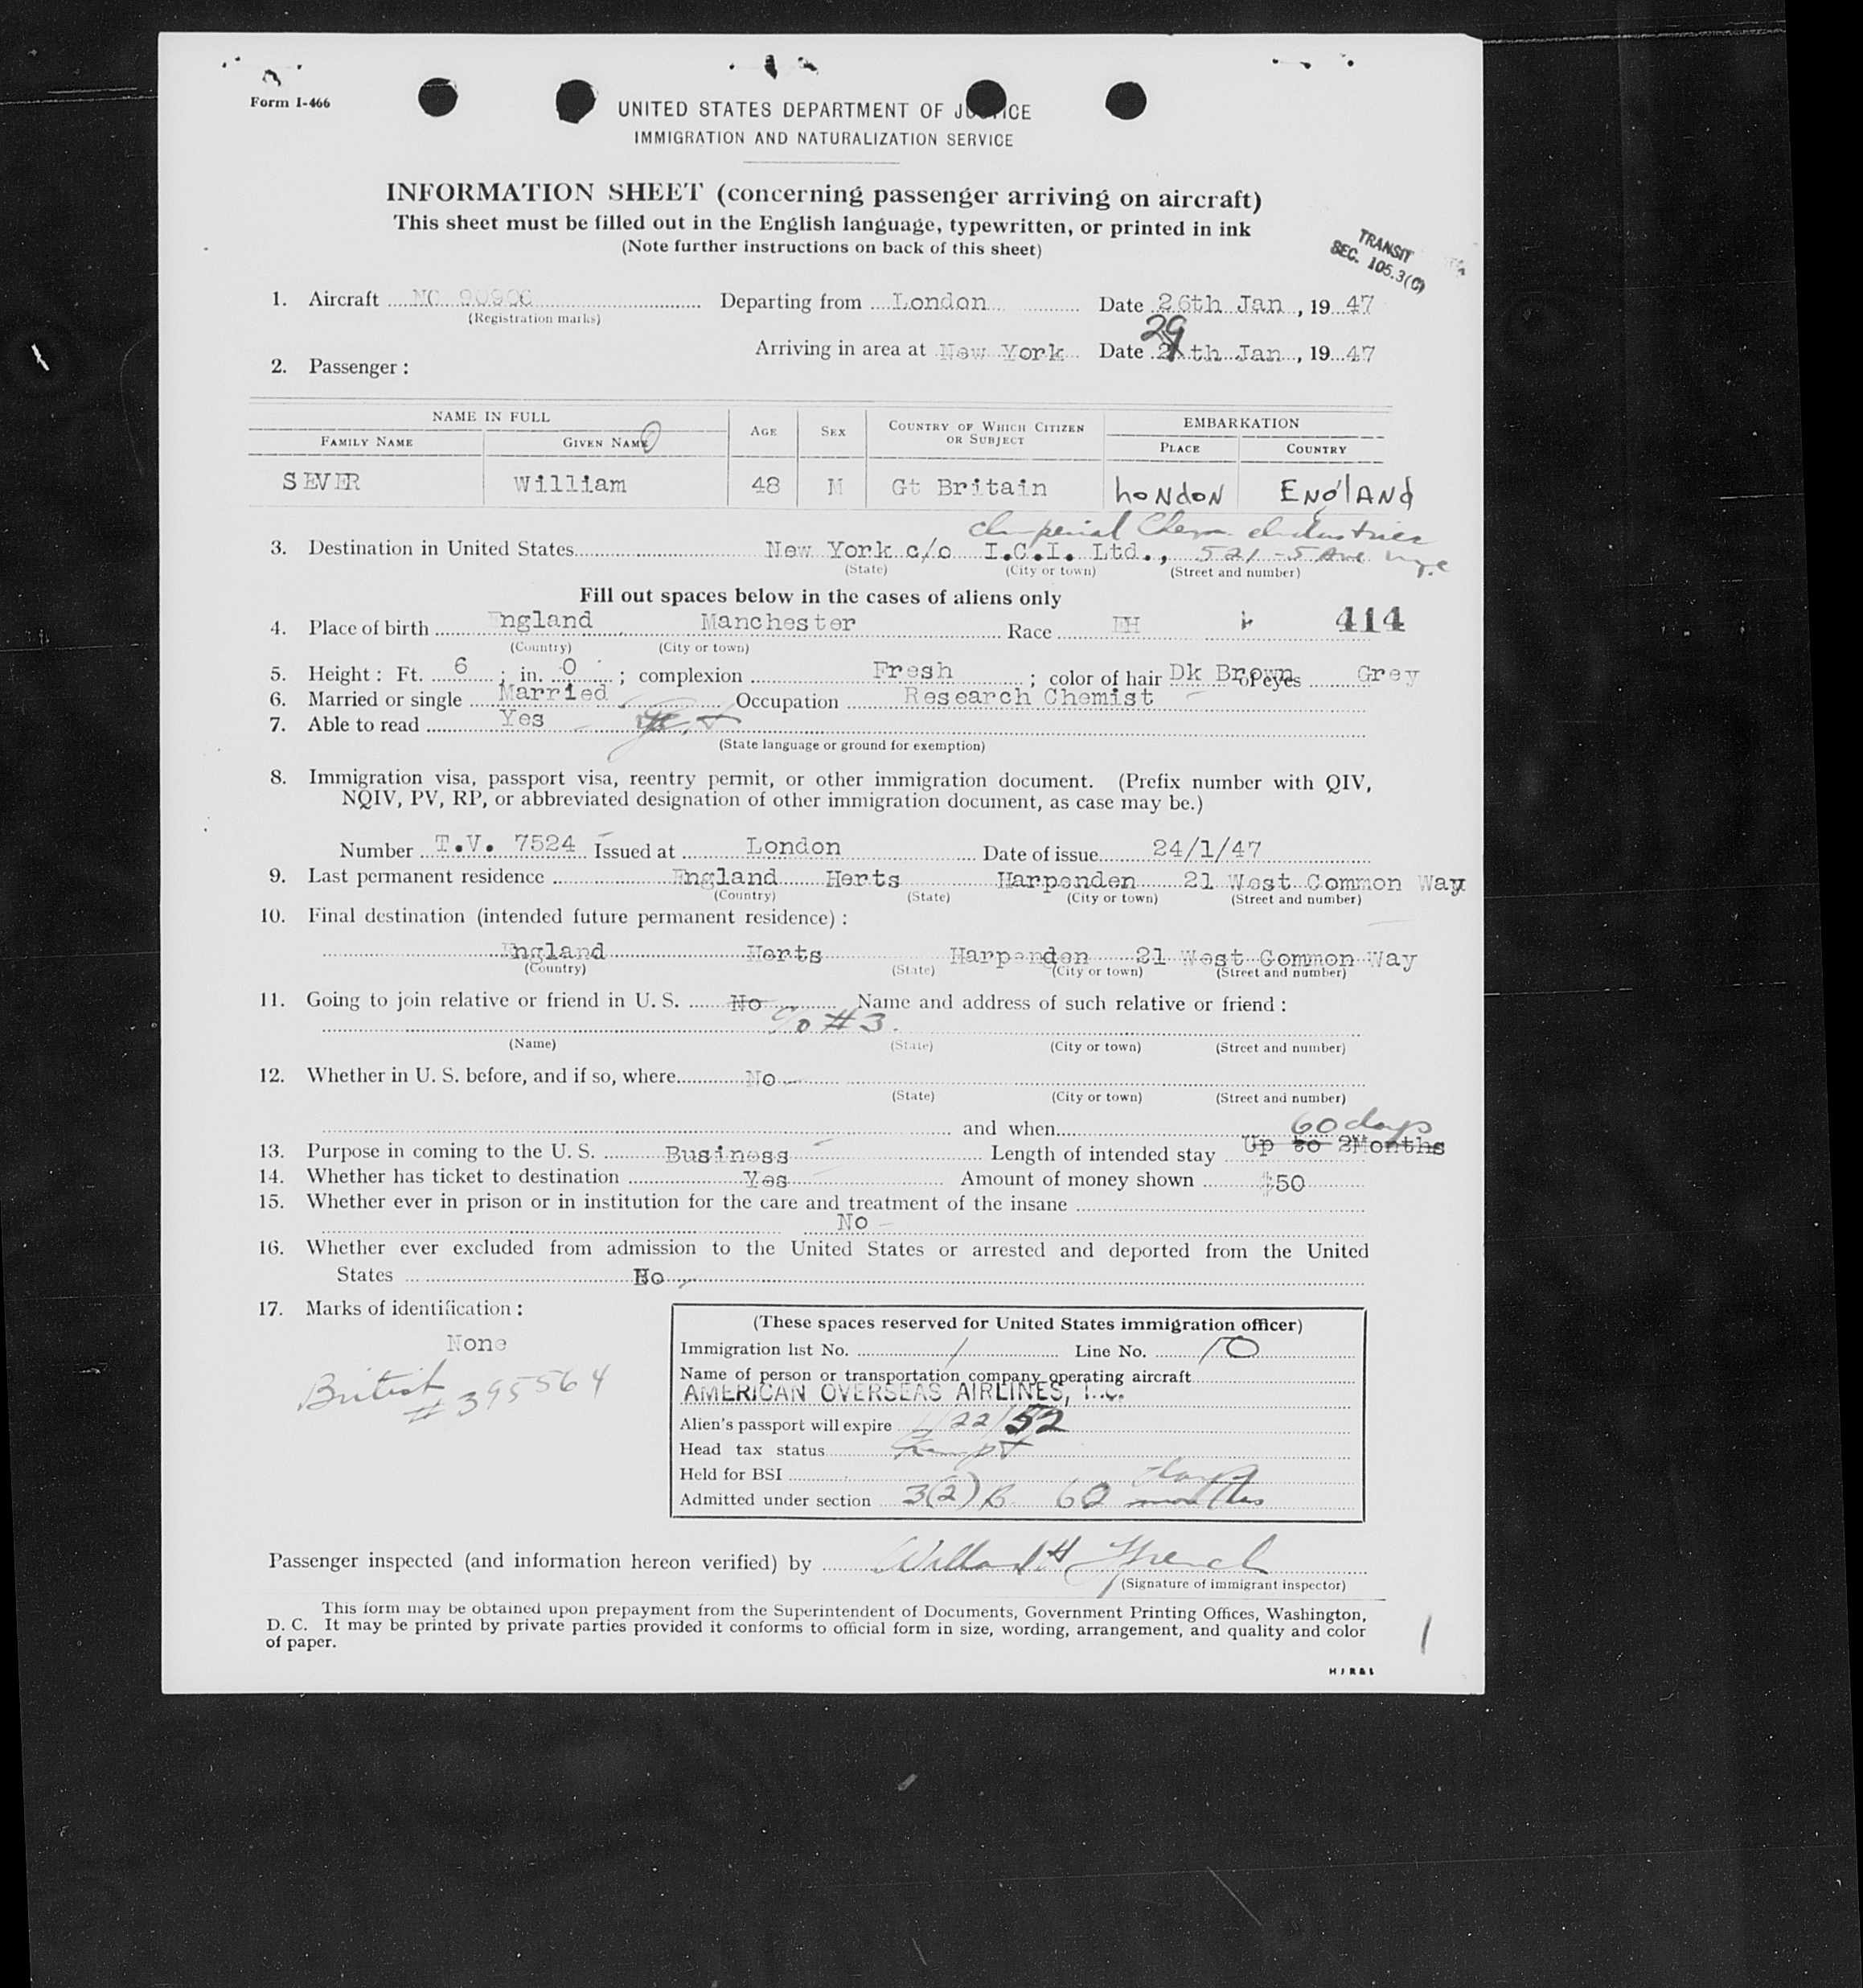 Form I-466
UNITED STATES DEPARTMENT OF JUSTICE
IMMIGRATION AND NATURALIZATION SERVICE
INFORMATION SHEET (concerning passenger arriving on aircraft)
This sheet must be filled out in the English language, typewritten, or printed in ink
(Note further instructions on back of this sheet)
TRANSIT
SEC. 105.3(C)
1. Aircraft NC 90906 Departing from London Date 26th Jan, 1947
(Registration marks)
29
Arriving in area at New York Date th Jan, 1947
2. Passenger:
NAME IN FULL AGE SEX COUNTRY OF WHICH CITIZEN OR SUBJECT EMBARKATION
FAMILY NAME GIVEN NAME PLACE COUNTRY
SEVER William 48 M Gt Britain LONdON ENGlANd
Imperial Chem Industries
3. Destination in United States New York c/o I.C.I. Ltd., 521 - 5 Ave nyc
(State) (City or town) (Street and number)
Fill out spaces below in the cases of aliens only
4. Place of birth England Manchester Race EH 414
(Country) (City or town)
5. Height: Ft. 6; in. 0; complexion Fresh; color of hair Dk Brown of eyes Grey
6. Married or single Married Occupation Research Chemist
7. Able to read Yes
(State language or ground for exemption)
8. Immigration visa, passport visa, reentry permit, or other immigration document. (Prefix number with QIV,
NQIV, PV, RP, or abbreviated designation of other immigration document, as case may be.)
Number T.V. 7524 Issued at London Date of issue 24/1/47
9. Last permanent residence England Herts Harpenden 21 West Common Way
(Country) (State) (City or town) (Street and number)
10. Final destination (intended future permanent residence):
England Herts Harpenden 21 West Common Way
(Country) (State) (City or town) (Street and number)
11. Going to join relative or friend in U. S. No Name and address of such relative or friend:
c/o #3.
(Name) (State) (City or town) (Street and number)
12. Whether in U. S. before, and if so, where No
(State) (City or town) (Street and number)
and when
60 days
13. Purpose in coming to the U. S. Business Length of intended stay Up to 2Months
14. Whether has ticket to destination Yes Amount of money shown $50
15. Whether ever in prison or in institution for the care and treatment of the insane
No
16. Whether ever excluded from admission to the United States or arrested and deported from the United
States No
17. Marks of identification:
None
British
# 395564
(These spaces reserved for United States immigration officer)
Immigration list No. 1 Line No. 10
Name of person or transportation company operating aircraft
AMERICAN OVERSEAS AIRLINES, INC.
Alien's passport will expire 1/22/52
Head tax status Exempt
Held for BSI
days
Admitted under section 3(2)B 60 months
Passenger inspected (and information hereon verified) by Willard H French
(Signature of immigrant inspector)
This form may be obtained upon prepayment from the Superintendent of Documents, Government Printing Offices, Washington,
D. C. It may be printed by private parties provided it conforms to official form in size, wording, arrangement, and quality and color
of paper.
HJR&S